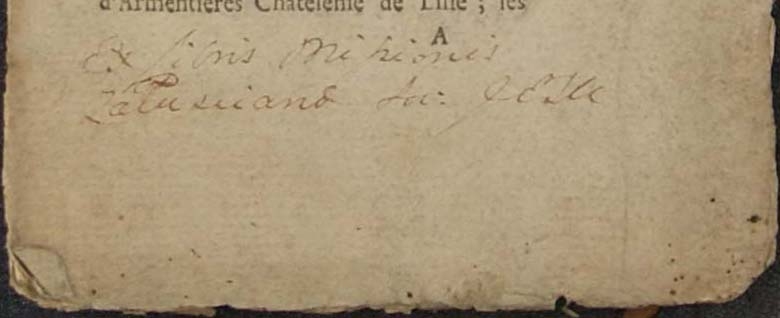 d'Armentieres Châtelenie de Lille ; les
A
Ex libris Missionis
Zaluscianæ Soc: JESU